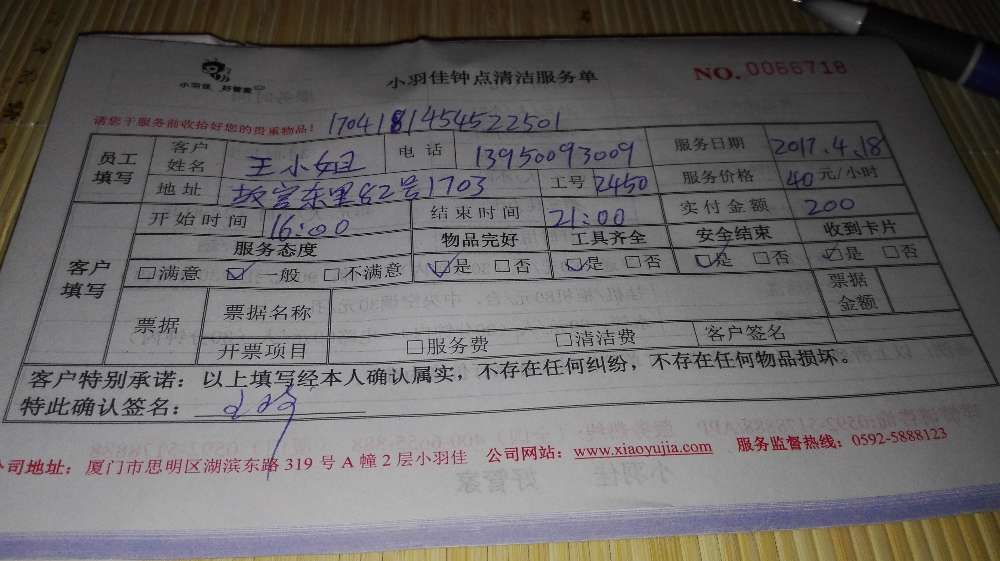 小羽佳 好管家
小羽佳钟点清洁服务单
NO. 0066718
请您于服务前收拾好您的贵重物品！ 1704181454522501
员工填写 客户姓名 王小姐 电话 13950093009 服务日期 2017.4.18
地址 故宫东里82号1703 工号 2450 服务价格 40元/小时
客户填写 开始时间 16:00 结束时间 21:00 实付金额 200
服务态度 物品完好 工具齐全 安全结束 收到卡片
□满意 ☑一般 □不满意 ☑是 □否 ☑是 □否 ☑是 □否 ☑是 □否
票据 票据名称 票据金额
开票项目 □服务费 □清洁费 客户签名
客户特别承诺：以上填写经本人确认属实，不存在任何纠纷，不存在任何物品损坏。
特此确认签名：
公司地址：厦门市思明区湖滨东路 319 号 A 幢 2 层小羽佳 公司网站：www.xiaoyujia.com 服务监督热线：0592-5888123